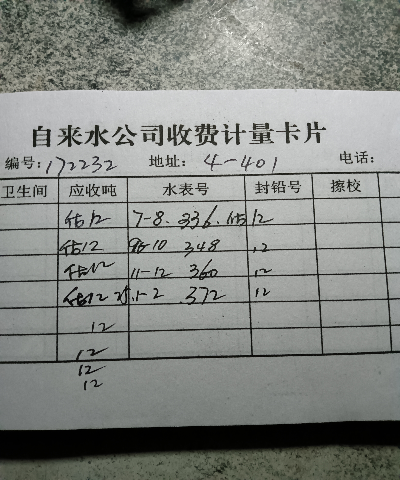 自来水公司收费计量卡片
编号:172232 地址: 4-401 电话:
卫生间 应收吨 水表号 封铅号 擦校
估12 7-8. 336. 估12
估12 9-10 348 12
估12 11-12 360 12
估12 1-2 372 12
12
12
12
12